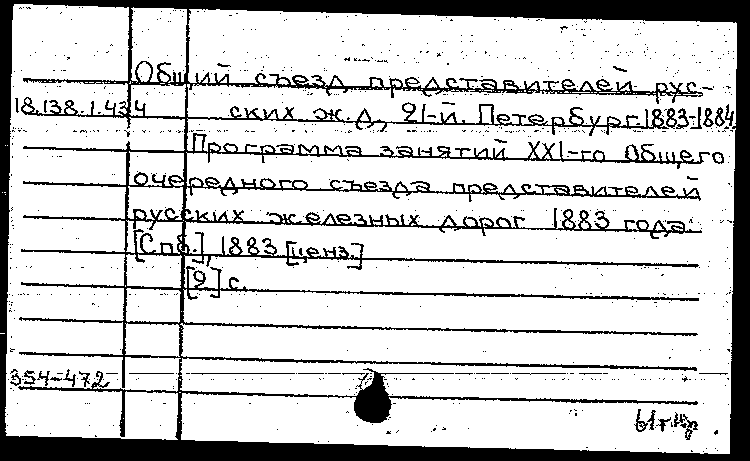 Общий съезд представителей рус-
18.138.1.434 ских ж.д., 21-й. Петербург. 1883-1884
Программа занятий XXI-го Общего
очередного съезда представителей
русских железных дорог 1883 года.
[Спб.], 1883 [ценз.]
[2] с.
354-472
61г.